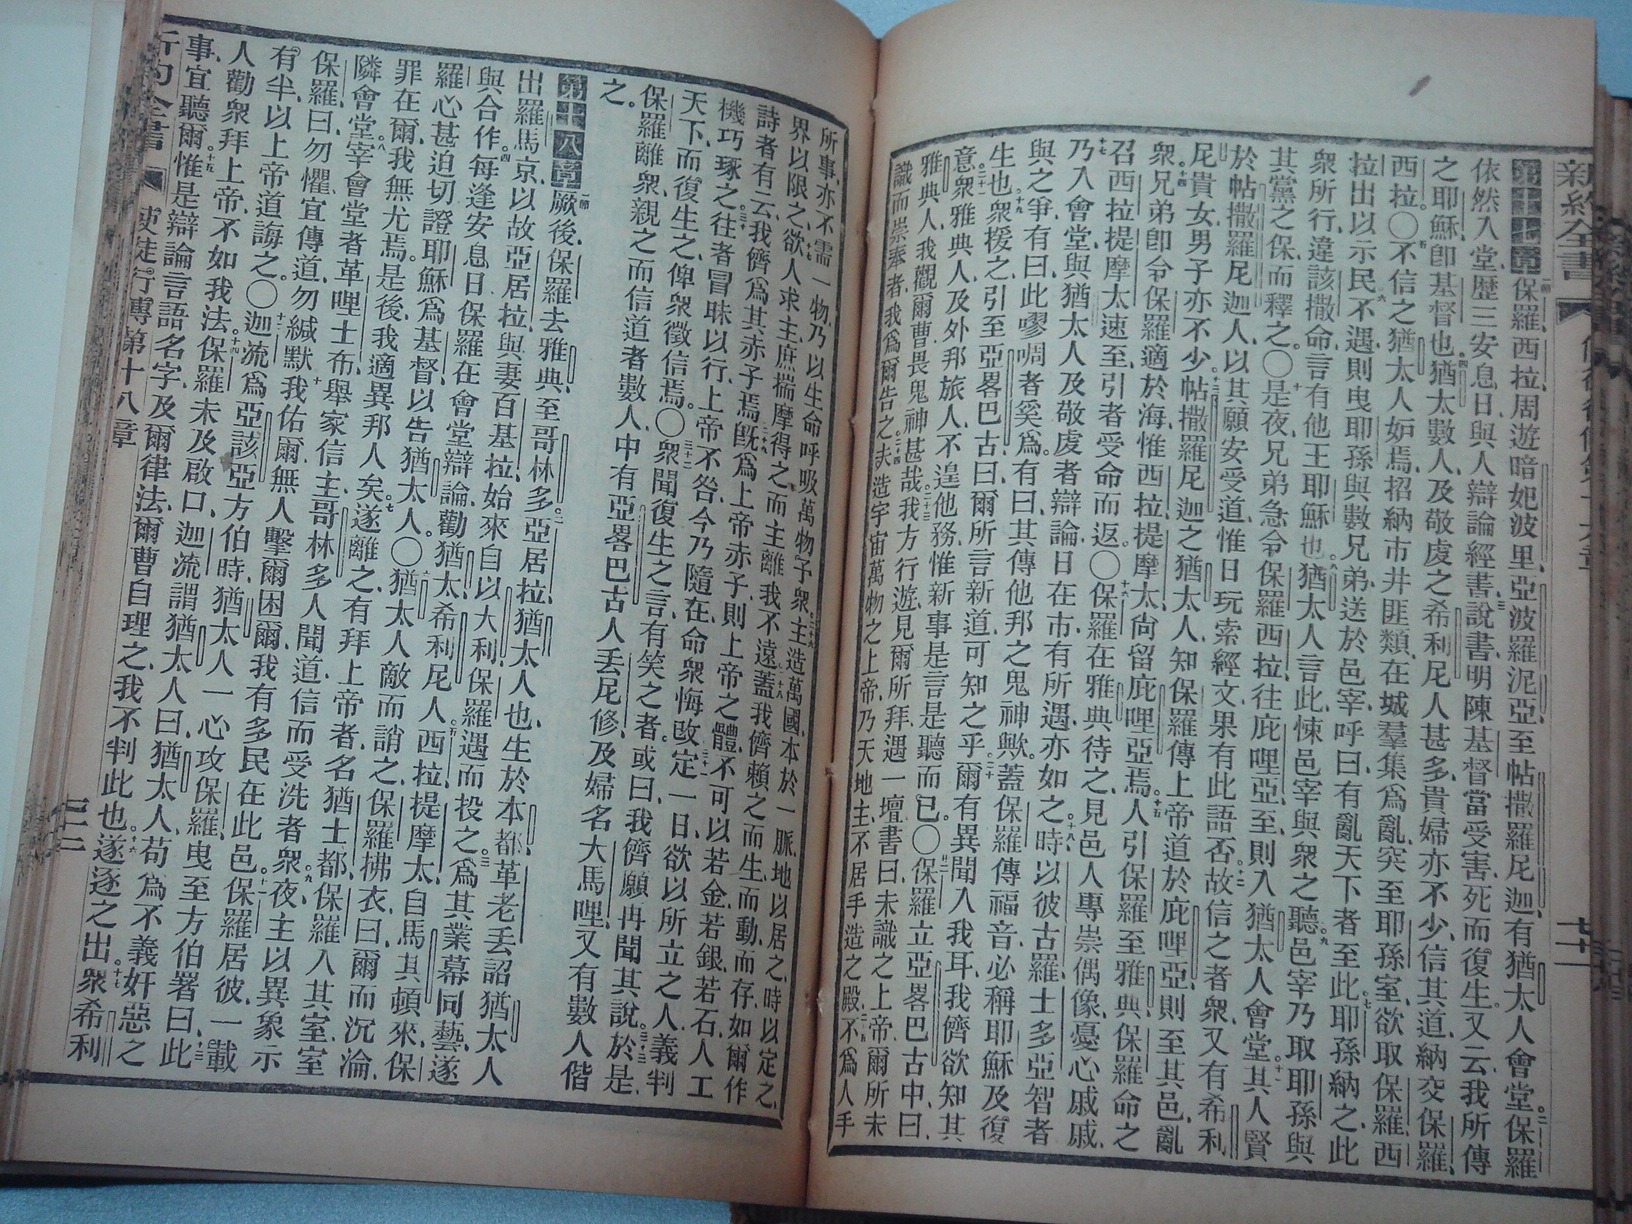 新約全書
第十七章一節保羅西拉周遊暗妃波里亞波羅泥亞至帖撒羅尼迦有猶太人會堂二保羅
依然入堂歷三安息日與人辯論經書三說書明陳基督當受害死而復生又云我所傳
之耶穌卽基督也四猶太數人及敬虔之希利尼人甚多貴婦亦不少信其道納交保羅
西拉○五不信之猶太人妒焉招納市井匪類在城羣集爲亂突至耶孫室欲取保羅西
拉出以示民六不遇則曳耶孫與數兄弟送於邑宰呼曰有亂天下者至此七耶孫納之此
衆所行違該撒命言有他王耶穌也八猶太人言此悚邑宰與衆之聽九邑宰乃取耶孫與
其黨之保而釋之○十是夜兄弟急令保羅西拉往庇哩亞至則入猶太人會堂十一其人賢
於帖撒羅尼迦人以其願安受道惟日玩索經文果有此語否十二故信之者衆又有希利
尼貴女男子亦不少十三帖撒羅尼迦之猶太人知保羅傳上帝道於庇哩亞則至其邑亂
衆十四兄弟卽令保羅適於海惟西拉提摩太尙留庇哩亞焉十五人引保羅至雅典保羅命之
召西拉提摩太速至引者受命而返○十六保羅在雅典待之見邑人專崇偶像憂心戚戚
十七乃入會堂與猶太人及敬虔者辯論日在市有所遇亦如之十八時以彼古羅士多亞智者
與之爭有曰此嘐啁者奚爲有曰其傳他邦之鬼神歟蓋保羅傳福音必稱耶穌及復
生也十九衆援之引至亞畧巴古曰爾所言新道可知之乎二十爾有異聞入我耳我儕欲知其
意二十一衆雅典人及外邦旅人不遑他務惟新事是言是聽而已○廿二保羅立亞畧巴古中曰
雅典人我觀爾曹畏鬼神甚哉二十三我方行遊見爾所拜遇一壇書曰未識之上帝爾所未
識而崇奉者我爲爾告之二十四夫造宇宙萬物之上帝乃天地主不居手造之殿二十五不爲人手
所事亦不需一物乃以生命呼吸萬物予衆二十六主造萬國本於一脈地以居之時以定之
界以限之二十七欲人求主庶揣摩得之而主離我不遠二十八蓋我儕賴之而生而動而存如爾作
詩者有云我儕爲其赤子焉二十九旣爲上帝赤子則上帝之體不可以若金若銀若石人工
機巧琢之三十往者冒昧以行上帝不咎今乃隨在命衆悔改三十一定一日欲以所立之人義判
天下而復生之俾衆徵信焉○三十二衆聞復生之言有笑之者或曰我儕願再聞其說三十三於是
保羅離衆三十四親之而信道者數人中有亞畧巴古人丢尼修及婦名大馬哩又有數人偕
之
第十八章一節厥後保羅去雅典至哥林多二亞居拉猶太人也生於本都革老丢詔猶太人
出羅馬京以故亞居拉與妻百基拉始來自以大利保羅遇而投之三爲其業幕同藝遂
與合作四每逢安息日保羅在會堂辯論勸猶太希利尼人五西拉提摩太自馬其頓來保
羅心甚迫切證耶穌爲基督以告猶太人○六猶太人敵而誚之保羅拂衣曰爾而沉淪
罪在爾我無尤焉是後我適異邦人矣七遂離之有拜上帝者名猶士都保羅入其室室
隣會堂八宰會堂者革哩士布舉家信主哥林多人聞道信而受洗者衆九夜主以異象示
保羅曰勿懼宜傳道勿緘默十我佑爾無人擊爾困爾我有多民在此邑十一保羅居彼一載
有半以上帝道誨之○十二迦流爲亞該亞方伯時猶太人一心攻保羅曳至方伯署曰十三此
人勸衆拜上帝不如我法十四保羅未及啟口迦流謂猶太人曰猶太人苟爲不義奸惡之
事宜聽爾十五惟是辯論言語名字及爾律法爾曹自理之我不判此也十六遂逐之出十七衆希利
新約全書 使徒行傳第十八章